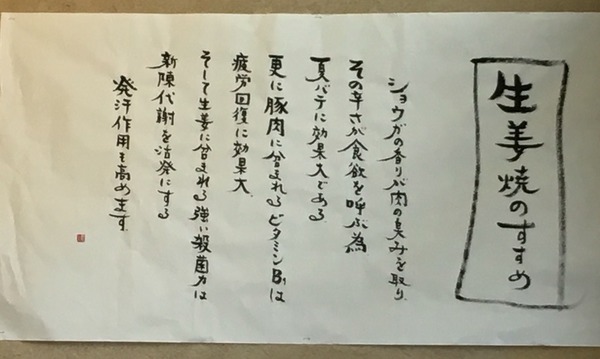 生姜焼のすすめ
ショウガの香りが肉の臭みを取り
その辛さが食欲を呼ぶ為
夏バテに効果大である
更に豚肉に含まれるビタミンB₁は
疲労回復に効果大
そして生姜に含まれる強い殺菌力は
新陳代謝を活発にする
発汗作用も高めます